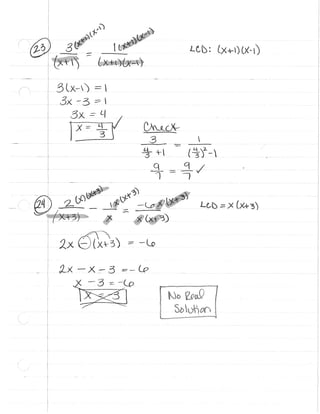 23. 3(x+1)(x-1)/(x+1) = 1(x+1)(x-1)/(x+1)(x-1) LCD: (x+1)(x-1)
3(x-1) = 1
3x - 3 = 1
3x = 4
x = 4/3 ✓
Check
3/(4/3 + 1) = 1/((4/3)² - 1)
9/7 = 9/7 ✓
24. 2(x)(x+3)/(x+3) - 1x(x+3)/x = -6x(x+3)/x(x+3) LCD = x(x+3)
2x - (x+3) = -6
2x - x - 3 = -6
x - 3 = -6
x = -3
No Real
Solution